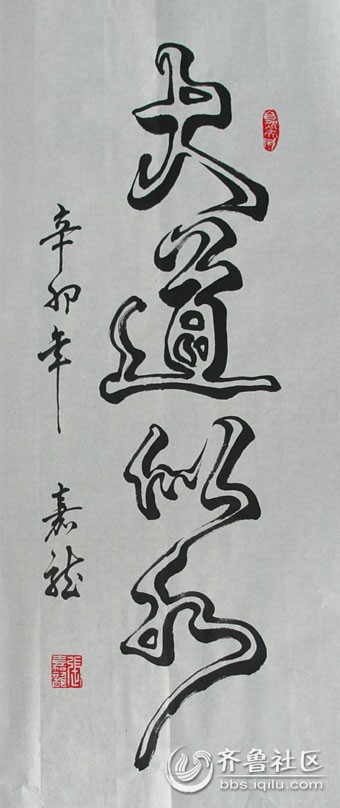 大道似水
辛卯年 嘉龙
张嘉龙
齐鲁社区
bbs.iqilu.com